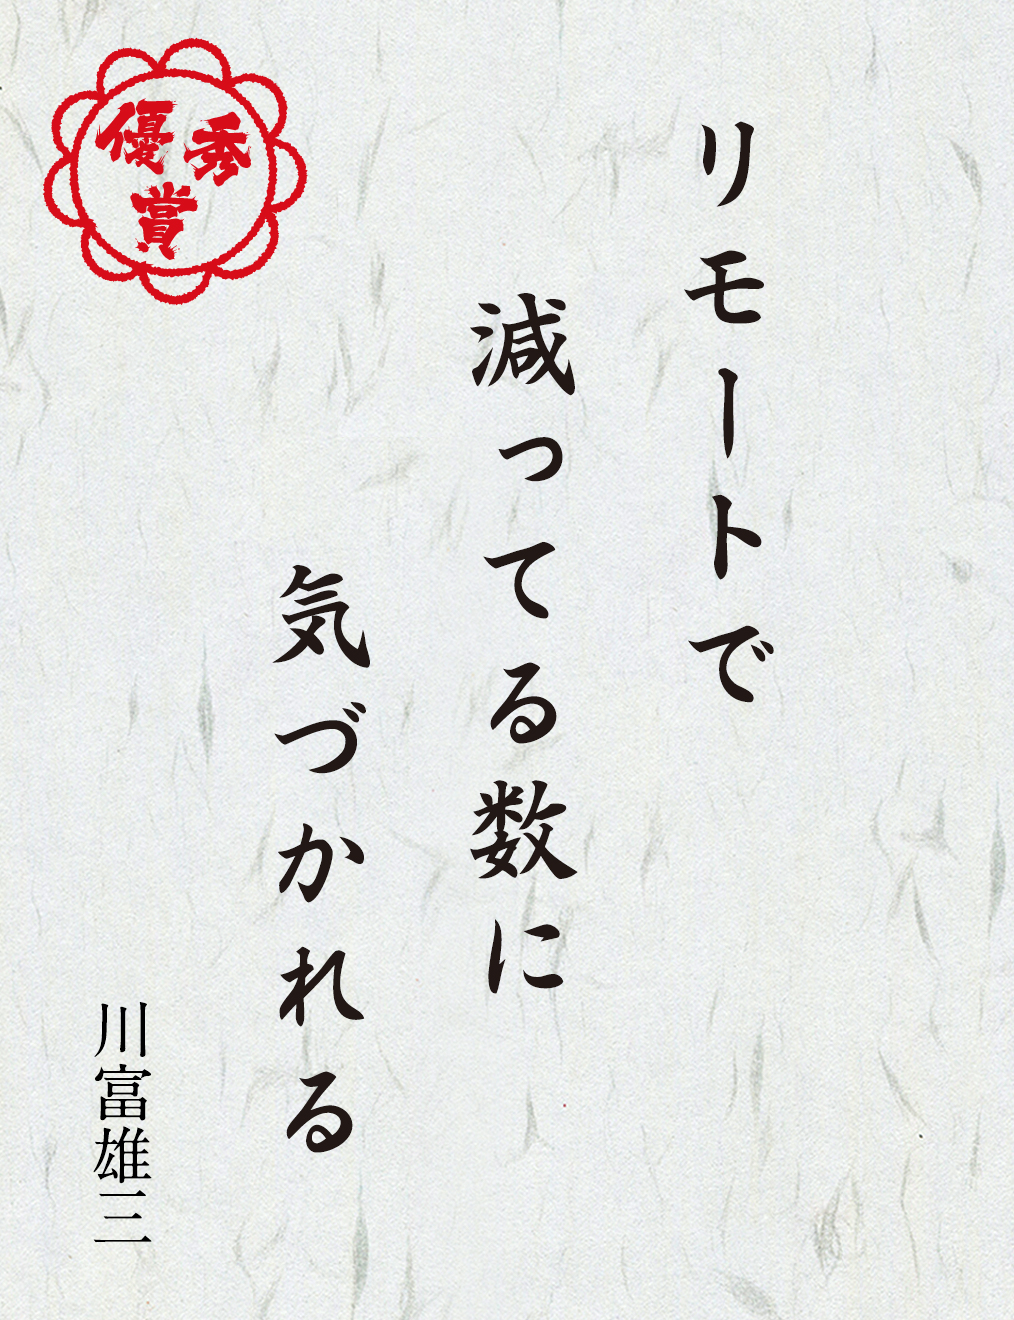 リモートで
減ってる数に
気づかれる
川富雄三
優秀
賞